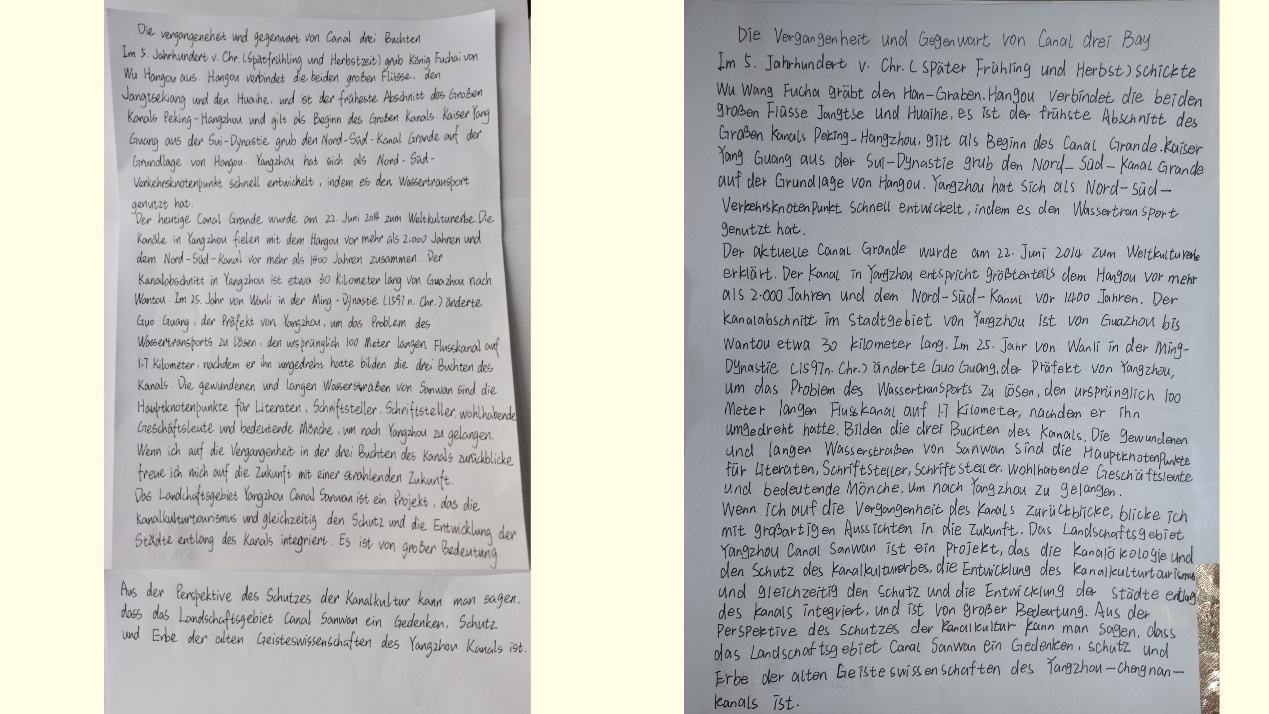 Die vergangeneheit und gegenwart von Canal drei Buchten
Im 5. Jahrhundert v. Chr. (Spätfrühling und Herbstzeit) grub König Fuchai von
Wu Hangou aus. Hangou verbindet die beiden großen Flüsse. den
Jangtsekiang und den Huaihe, und ist der früheste Abschnitt des Großen
Kanals Peking-Hangzhou und gilt als Beginn des Großen Kanals. Kaiser Yang
Guang aus der Sui-Dynastie grub den Nord-Süd-Kanal Grande auf der
Grundlage von Hangou. Yangzhou hat sich als Nord-Süd-
Verkehrsknotenpunkt schnell entwickelt, indem es den Wassertransport
genutzt hat.
Der heutige Canal Grande wurde am 22. Juni 2014 zum Weltkulturerbe. Die
Kanäle in Yangzhou fielen mit dem Hangou vor mehr als 2.000 Jahren und
dem Nord-Süd-Kanal vor mehr als 1400 Jahren zusammen. Der
Kanalabschnitt in Yangzhou ist etwa 30 Kilometer lang von Guazhou nach
Wantou. Im 25. Jahr von Wanli in der Ming-Dynastie (1597 n. Chr.) änderte
Guo Guang, der Präfekt von Yangzhou, um das Problem des
Wassertransports zu lösen, den ursprünglich 100 Meter langen Flusskanal auf
1.7 Kilometer, nachdem er ihn umgedreht hatte bilden die drei Buchten des
Kanals. Die gewundenen und langen Wasserstraßen von Sanwan sind die
Hauptknotenpunkte für Literaten, Schriftsteller, Schriftsteller, wohlhabende
Geschäftsleute und bedeutende Mönche, um nach Yangzhou zu gelangen.
Wenn ich auf die Vergangenheit in der drei Buchten des Kanals zurückblicke
freue ich mich auf die Zukunft mit einer strahlenden Zukunft.
Das Landschaftsgebiet Yangzhou Canal Sanwan ist ein Projekt, das die
Kanalkulturtourismus und gleichzeitig den Schutz und die Entwicklung der
Städte entlang des Kanals integriert. Es ist von großer Bedeutung.
Aus der Perspektive des Schutzes der Kanalkultur kann man sagen.
dass das Landschaftsgebiet Canal Sanwan ein Gedenken. Schutz
und Erbe der alten Geisteswissenschaften des Yangzhou Kanals ist.
Die Vergangenheit und Gegenwart von Canal drei Bay
Im 5. Jahrhundert v. Chr. (später Frühling und Herbst) schickte
Wu Wang Fucha gräbt den Han-Graben. Hangou verbindet die beiden
großen Flüsse Jangtse und Huaihe, es ist der frühste Abschnitt des
Großen Kanals Peking-Hangzhou, gilt als Beginn des Canal Grande. Kaiser
Yang Guang aus der Sui-Dynastie grub den Nord-Süd-Kanal Grande
auf der Grundlage von Hangou. Yangzhou hat sich als Nord-Süd-
Verkehrsknotenpunkt schnell entwickelt, indem es den Wassertransport
genutzt hat.
Der aktuelle Canal Grande wurde am 22. Juni 2014 zum Weltkulturerbe
erklärt. Der Kanal in Yangzhou entspricht größtenteils dem Hangou vor mehr
als 2.000 Jahren und dem Nord-Süd-Kanal vor 1400 Jahren. Der
Kanalabschnitt im Stadtgebiet von Yangzhou ist von Guazhou bis
Wantou etwa 30 Kilometer lang. Im 25. Jahr von Wanli in der Ming-
Dynastie (1597n. Chr.) änderte Guo Guang, der Präfekt von Yangzhou,
um das Problem des Wassertransports zu lösen, den ursprünglich 100
Meter langen Flusskanal auf 1.7 Kilometer, nachdem er ihn
umgedreht hatte. Bilden die drei Buchten des Kanals. Die gewundenen
und langen Wasserstraßen von Sanwan sind die Hauptknotenpunkte
für Literaten, Schriftsteller, Schriftsteller, wohlhabende Geschäftsleute
und bedeutende Mönche, um nach Yangzhou zu gelangen.
Wenn ich auf die Vergangenheit des Kanals zurückblicke, blicke ich
mit großartigen Aussichten in die Zukunft. Das Landschaftsgebiet
Yangzhou Canal Sanwan ist ein Projekt, das die Kanalökologie und
den Schutz des Kanalkulturerbes, die Entwicklung des Kanalkulturtourismus
und gleichzeitig den Schutz und die Entwicklung der Städte entlang
des Kanals integriert, und ist von großer Bedeutung. Aus der
Perspektive des Schutzes der Kanalkultur kann man sagen, dass
das Landschaftsgebiet Canal Sanwan ein Gedenken, schutz und
Erbe der alten Geisteswissenschaften des Yangzhou-chengnan-
kanals ist.